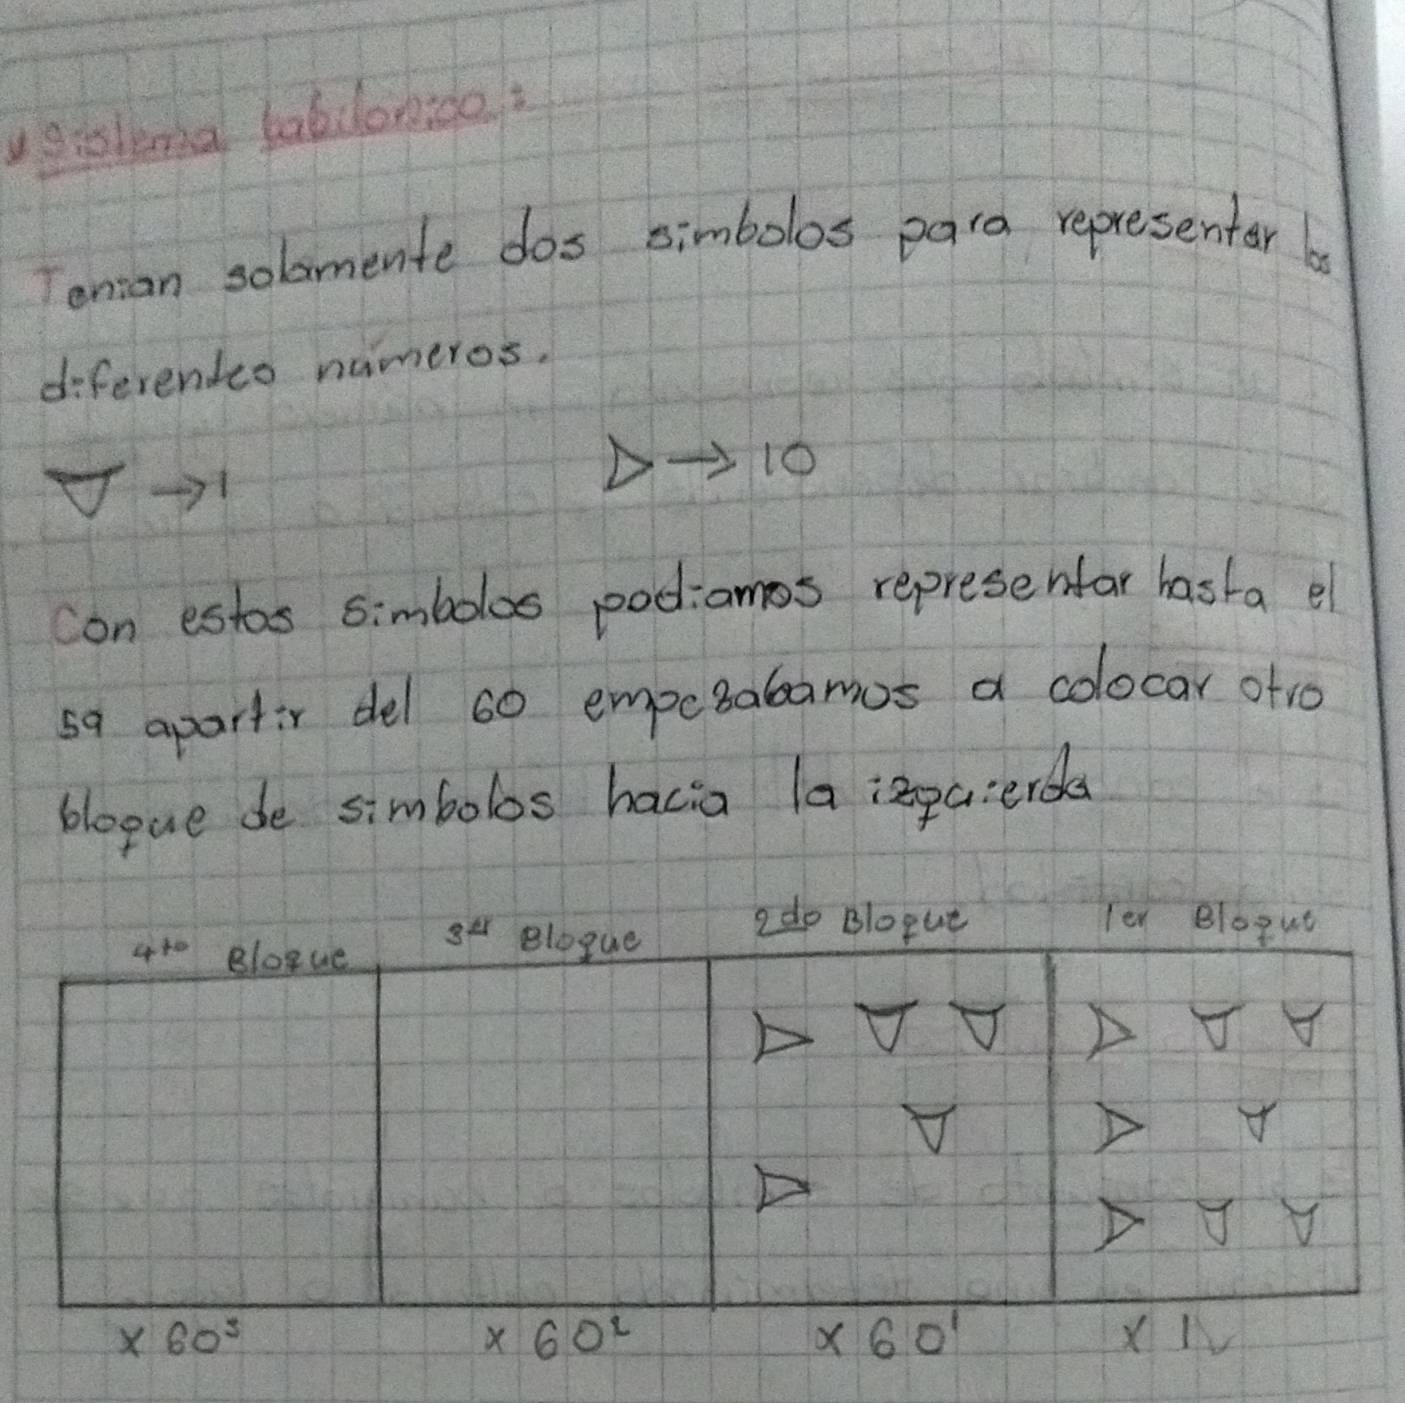 Sistema babilonico:
Tenian solamente dos simbolos para representar los
diferentes números.
▽ → 1 ▷ → 10
Con estos simbolos podiamos representar hasta el
59 apartir del 60 empezabamos a colocar otro
bloque de simbolos hacia la izquierda
4to Bloque 3er Bloque 2do Bloque 1er Bloque
▷ ▽ ▽ ▷ ▽ ▽
▽ ▷ ▽
▷ ▷ ▽ ▽
x 60³ x 60² x 60¹ x 1